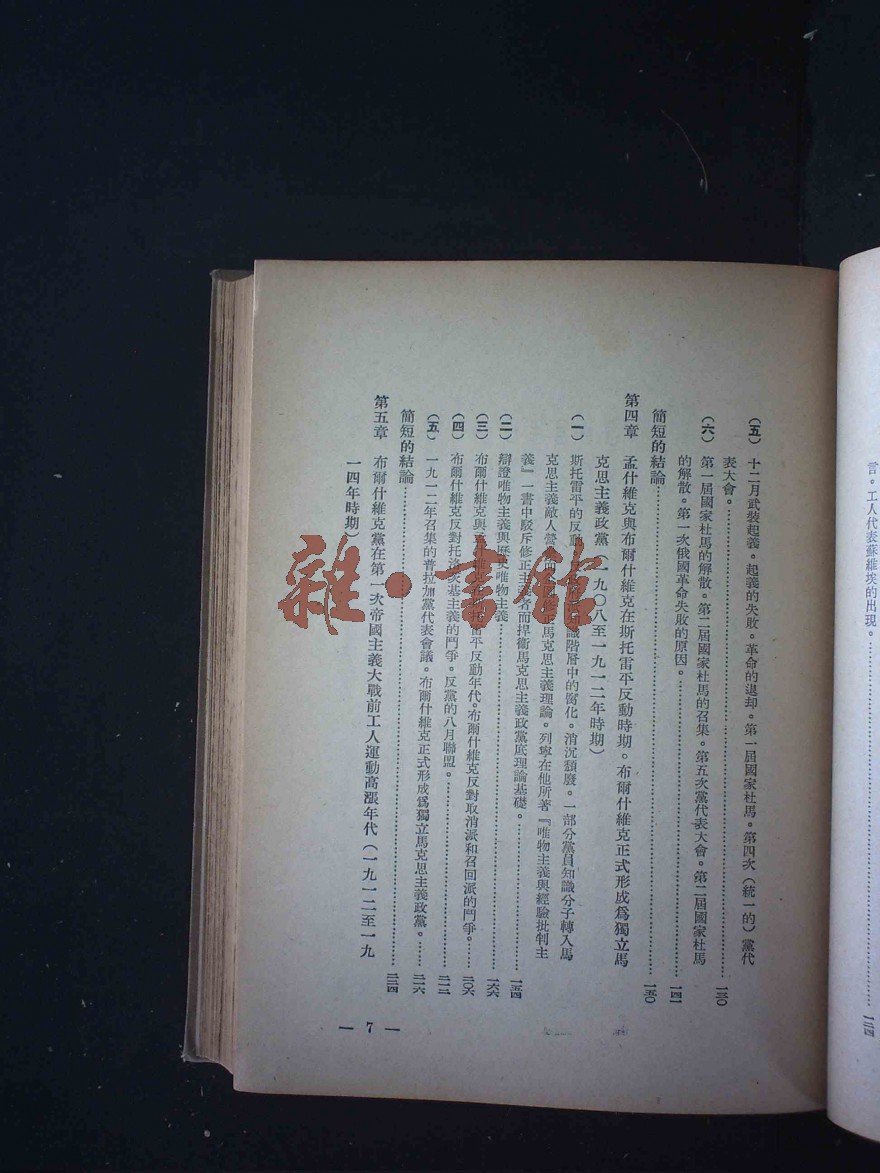 言。工人代表蘇維埃的出現。……一二四
(五) 十二月武裝起義。起義的失敗。革命的退却。第一屆國家杜馬。第四次(統一的)黨代
表大會。……一三〇
(六) 第一屆國家杜馬的解散。第二屆國家杜馬的召集。第五次黨代表大會。第二屆國家杜馬
的解散。第一次俄國革命失敗的原因。……一四一
簡短的結論……一五〇
第四章 孟什維克與布爾什維克在斯托雷平反動時期。布爾什維克正式形成爲獨立馬
克思主義政黨(一九〇八至一九一二年時期)
(一) 斯托雷平的反動。階層中的腐化。消沉頹廢。一部分黨員知識分子轉入馬
克思主義敵人營修正馬克思主義理論。列寧在他所著『唯物主義與經驗批判主
義』一書中駁斥修正主義者而捍衞馬克思主義政黨底理論基礎。……一五四
(二) 辯證唯物主義與歷史唯物主義……一六六
(三) 布爾什維克與孟什維克在斯托雷平反動年代。布爾什維克反對取消派和召回派的鬥爭。……二〇六
(四) 布爾什維克反對托洛茨基主義的鬥爭。反黨的八月聯盟。……二一二
(五) 一九一二年召集的普拉加黨代表會議。布爾什維克正式形成爲獨立馬克思主義政黨。……二一六
簡短的結論……二二四
第五章 布爾什維克黨在第一次帝國主義大戰前工人運動高漲年代(一九一二至一九
一四年時期)
— 7 —
雜·書館